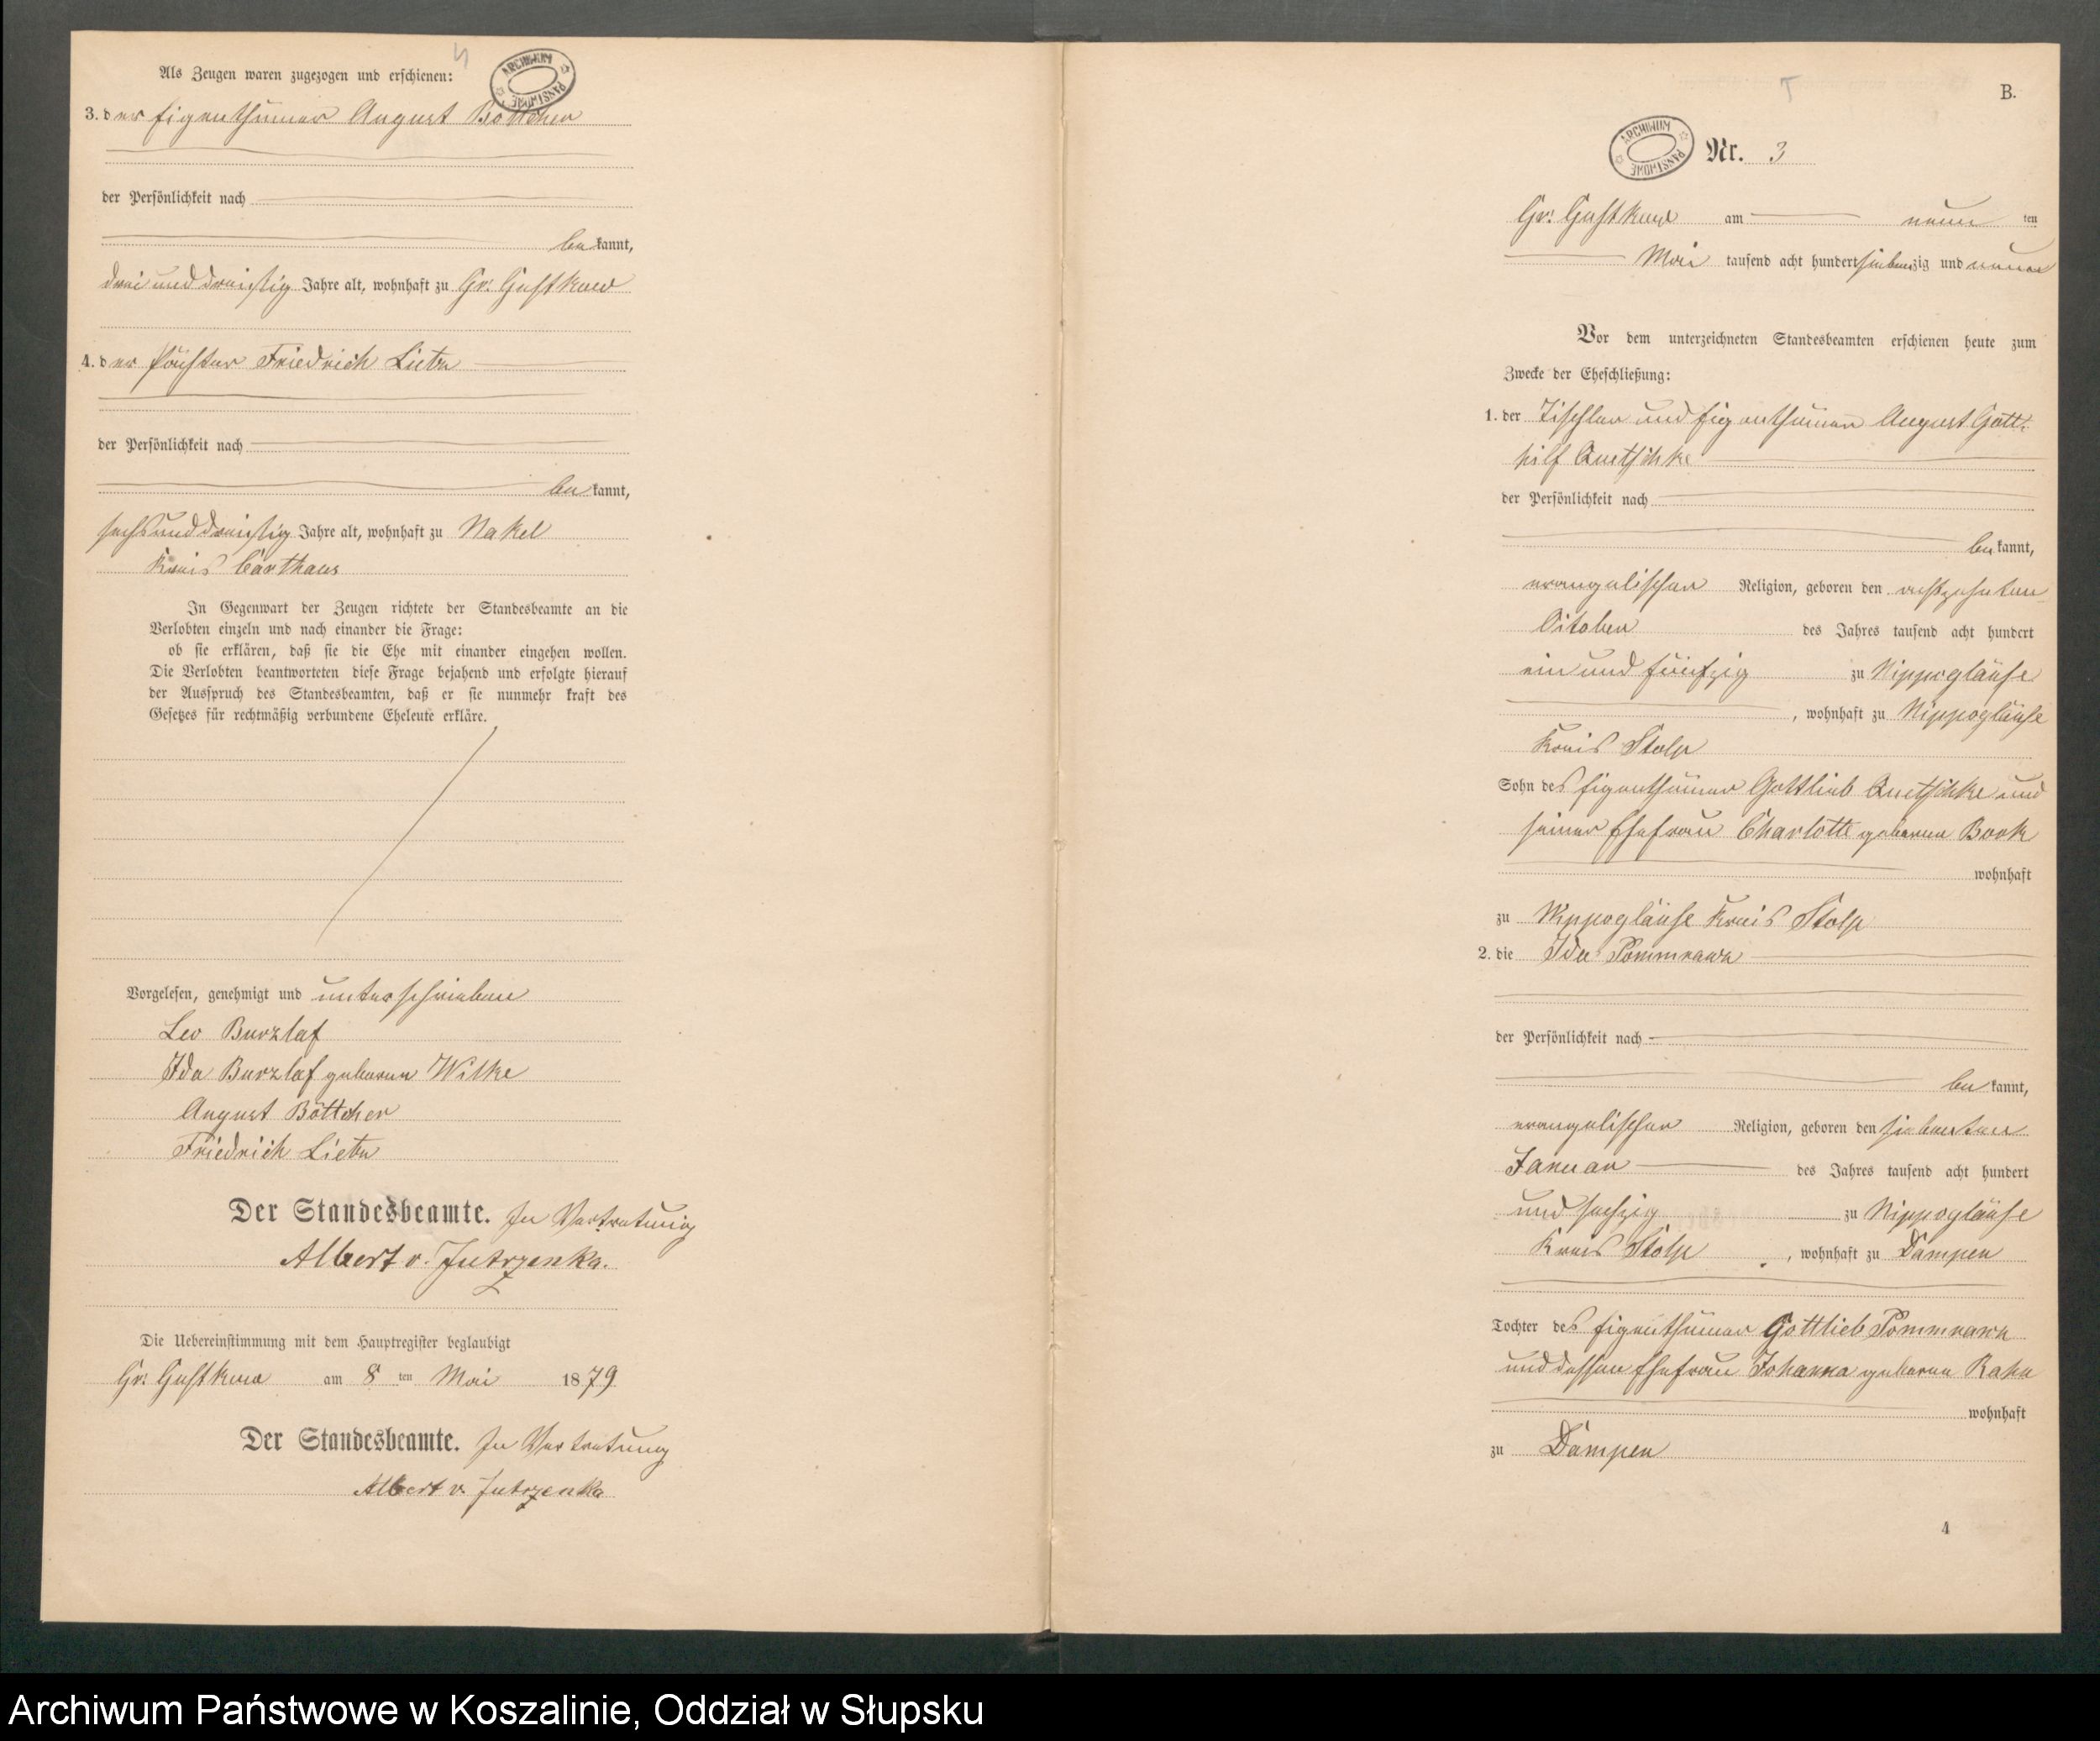 Als Zeugen waren zugezogen und erschienen:
ARCHIWUM PAŃSTWOWE
3. der Eigenthümer August Böttcher
der Persönlichkeit nach
bekannt,
drei und dreißig Jahre alt, wohnhaft zu Gr. Gustkow
4. der Förster Friedrich Lietz
der Persönlichkeit nach
bekannt,
sechsunddreißig Jahre alt, wohnhaft zu Nakel
Kreis Carthaus
In Gegenwart der Zeugen richtete der Standesbeamte an die
Verlobten einzeln und nach einander die Frage:
ob sie erklären, daß sie die Ehe mit einander eingehen wollen.
Die Verlobten beantworteten diese Frage bejahend und erfolgte hierauf
der Ausspruch des Standesbeamten, daß er sie nunmehr kraft des
Gesetzes für rechtmäßig verbundene Eheleute erkläre.
Vorgelesen, genehmigt und unterschrieben
Leo Burzlaf
Ida Burzlaf geborene Wilke
August Böttcher
Friedrich Lietz
Der Standesbeamte. In Vertretung
Albert v. Jutrzenka.
Die Uebereinstimmung mit dem Hauptregister beglaubigt
Gr. Gustkow am 8 ten Mai 1879
Der Standesbeamte. In Vertretung
Albert v. Jutrzenka
B.
ARCHIWUM PAŃSTWOWE
Nr. 3
Gr. Gustkow am neun ten
Mai tausend acht hundert siebenzig und neun
Vor dem unterzeichneten Standesbeamten erschienen heute zum
Zwecke der Eheschließung:
1. der Tischler und Eigenthümer August Gott-
hilf Quetschke
der Persönlichkeit nach
bekannt,
evangelischer Religion, geboren den achtzehnten
October des Jahres tausend acht hundert
ein und fünfzig zu Nippogläuse
, wohnhaft zu Nippogläuse
Kreis Stolp
Sohn des Eigenthümer Gottlieb Quetschke und
seiner Ehefrau Charlotte geborene Book
wohnhaft
zu Nippogläuse Kreis Stolp
2. die Ida Pommerank
der Persönlichkeit nach
bekannt,
evangelischer Religion, geboren den siebenten
Januar des Jahres tausend acht hundert
und sechzig zu Nippogläuse
Kreis Stolp , wohnhaft zu Dampen
Tochter des Eigenthümer Gottlieb Pommerank
und dessen Ehefrau Johanna geborene Rahn
wohnhaft
zu Dampen
4
Archiwum Państwowe w Koszalinie, Oddział w Słupsku